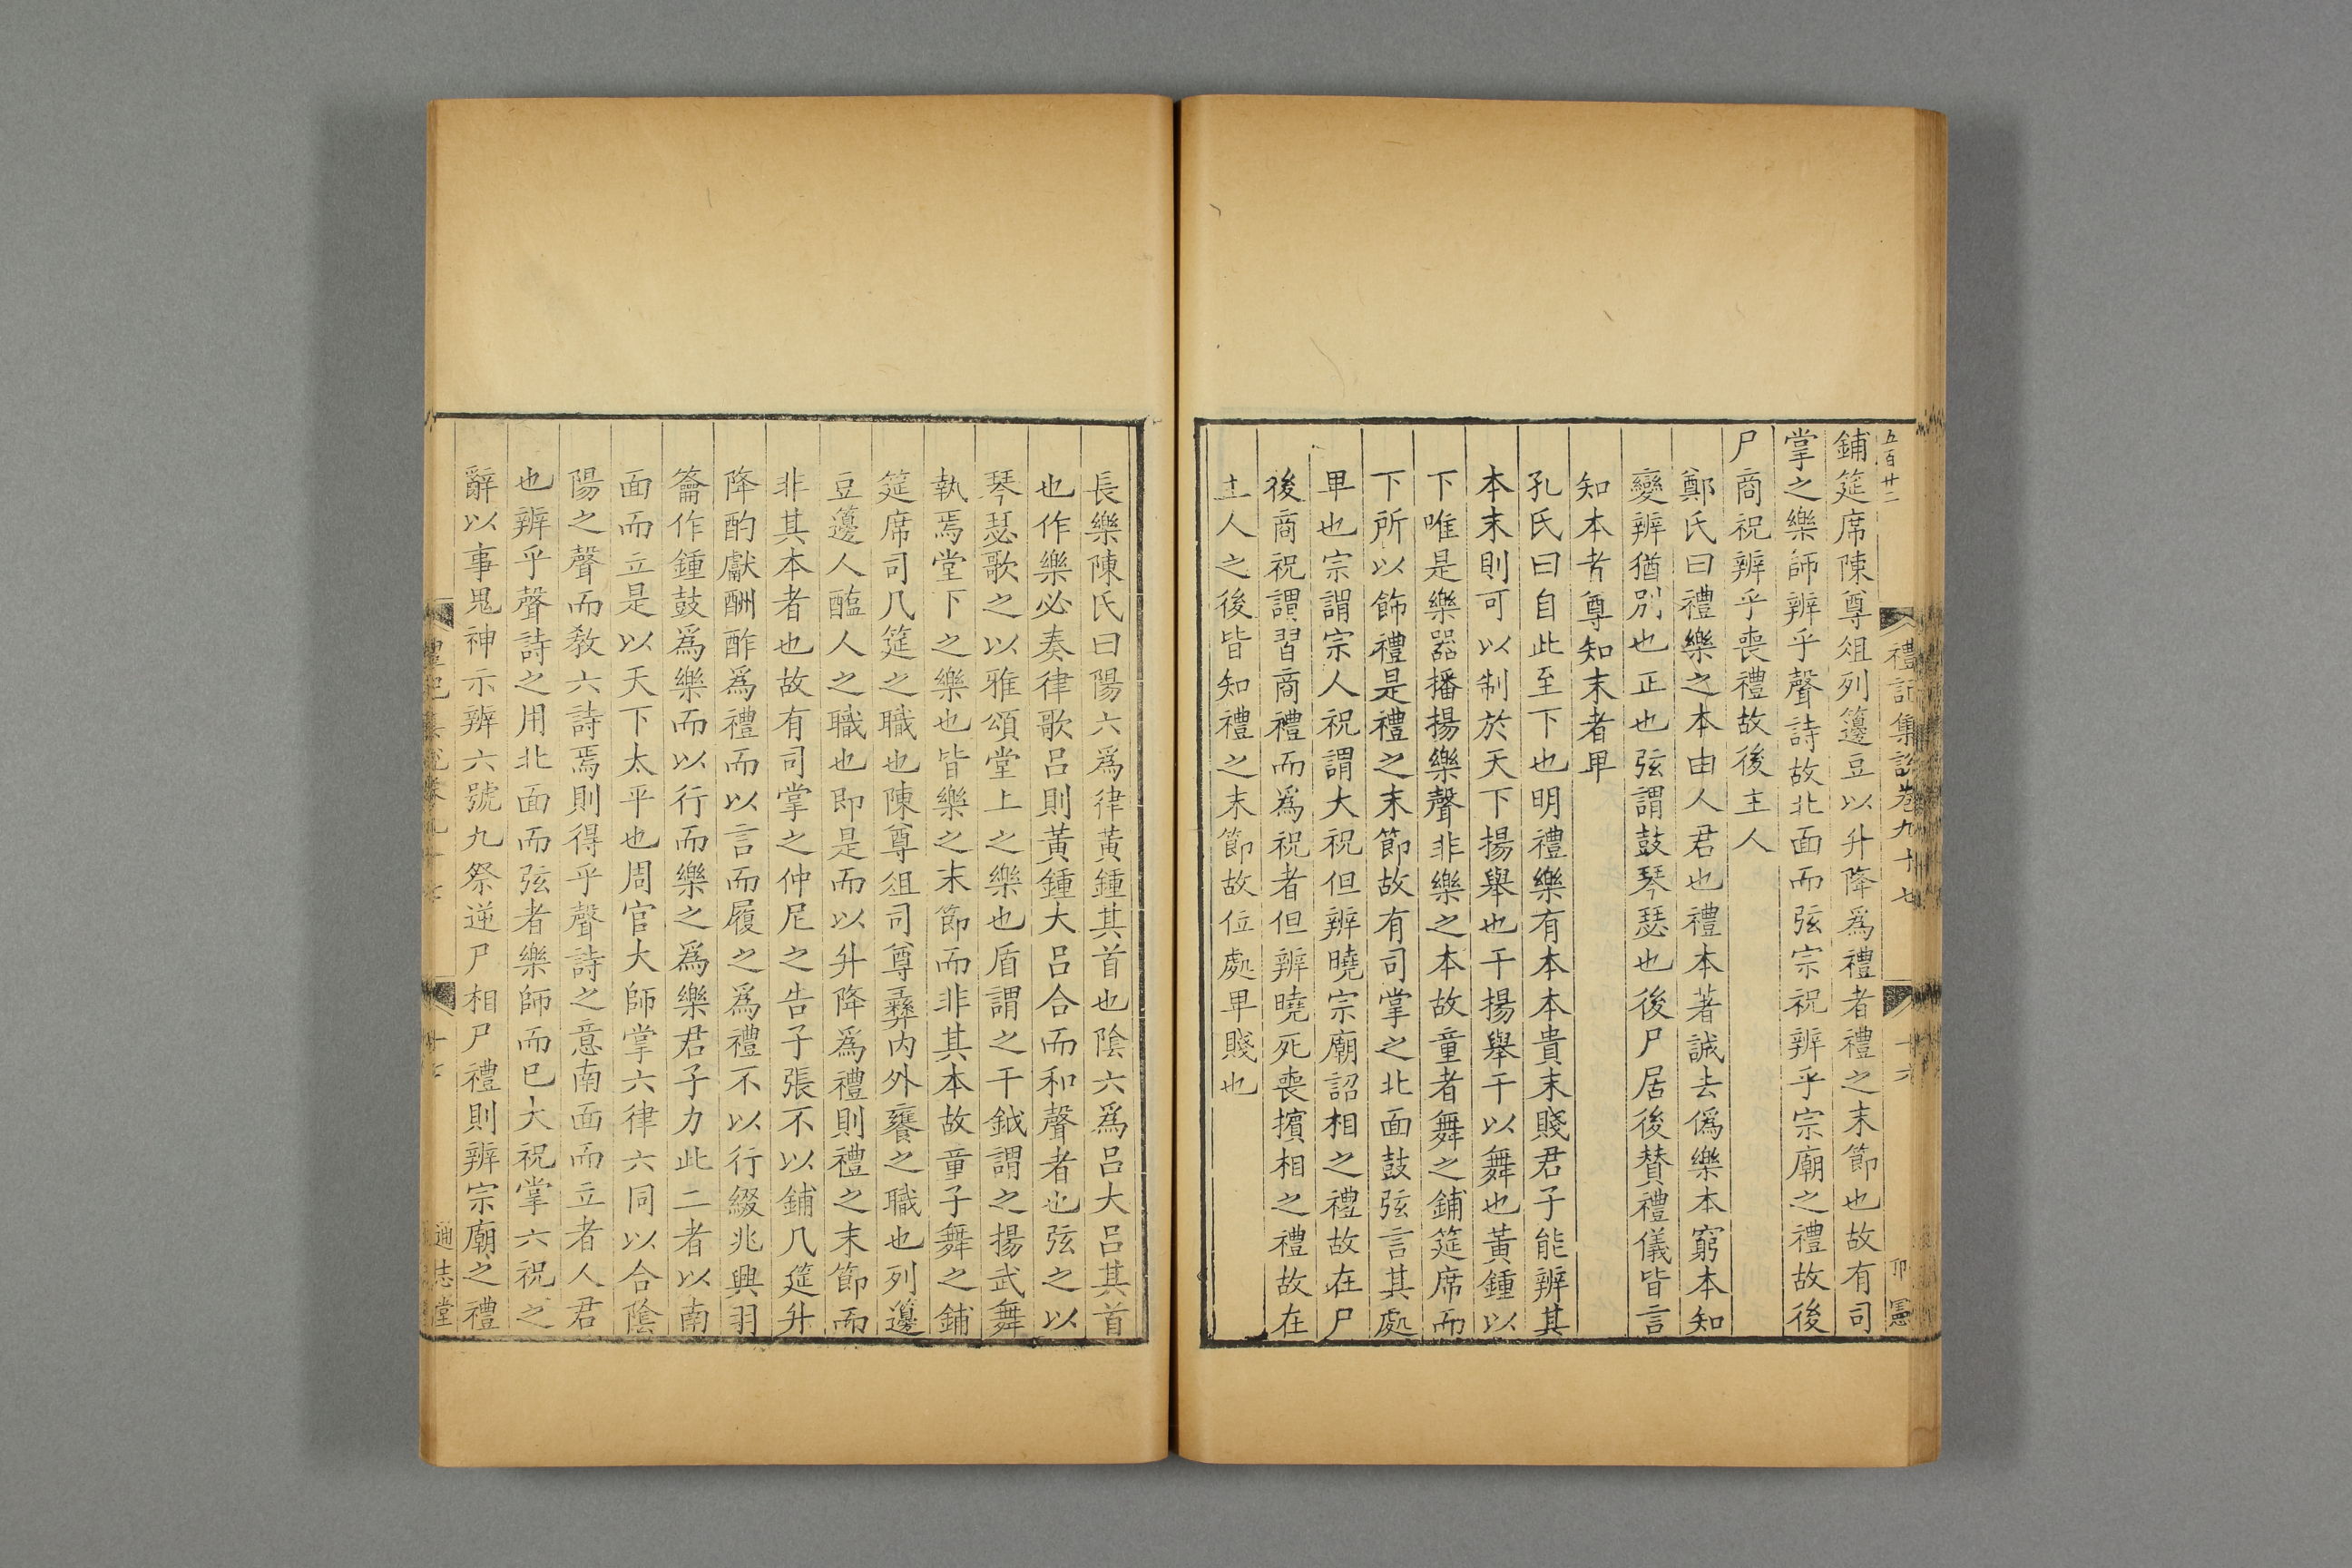 五百廿二
禮記集說卷九十七
十六
卬憲
鋪筵席陳尊俎列籩豆以升降爲禮者禮之末節也故有司
掌之樂師辨乎聲詩故北面而弦宗祝辨乎宗廟之禮故後
尸商祝辨乎喪禮故後主人
鄭氏曰禮樂之本由人君也禮本著誠去僞樂本窮本知
變辨猶別也正也弦謂鼓琴瑟也後尸居後賛禮儀皆言
知本者尊知末者卑
孔氏曰自此至下也明禮樂有本本貴末賤君子能辨其
本末則可以制於天下揚舉也干揚舉干以舞也黃鍾以
下唯是樂器播揚樂聲非樂之本故童者舞之鋪筵席而
下所以飾禮是禮之末節故有司掌之北面鼓弦言其處
卑也宗謂宗人祝謂大祝但辨曉宗廟詔相之禮故在尸
後商祝謂習商禮而爲祝者但辨曉死喪擯相之禮故在
主人之後皆知禮之末節故位處卑賤也
長樂陳氏曰陽六爲律黃鍾其首也陰六爲呂大呂其首
也作樂必奏律歌呂則黃鍾大呂合而和聲者也弦之以
琴瑟歌之以雅頌堂上之樂也盾謂之干鉞謂之揚武舞
執焉堂下之樂也皆樂之末節而非其本故童子舞之鋪
筵席司几筵之職也陳尊俎司尊彞內外饔之職也列籩
豆籩人醢人之職也即是而以升降爲禮則禮之末節而
非其本者也故有司掌之仲尼之告子張不以鋪几筵升
降酌獻酬酢爲禮而以言而履之爲禮不以行綴兆興羽
籥作鍾鼓爲樂而以行而樂之爲樂君子力此二者以南
面而立是以天下太平也周官大師掌六律六同以合陰
陽之聲而敎六詩焉則得乎聲詩之意南面而立者人君
也辨乎聲詩之用北面而弦者樂師而已大祝掌六祝之
辭以事鬼神示辨六號九祭逆尸相尸禮則辨宗廟之禮
通志堂